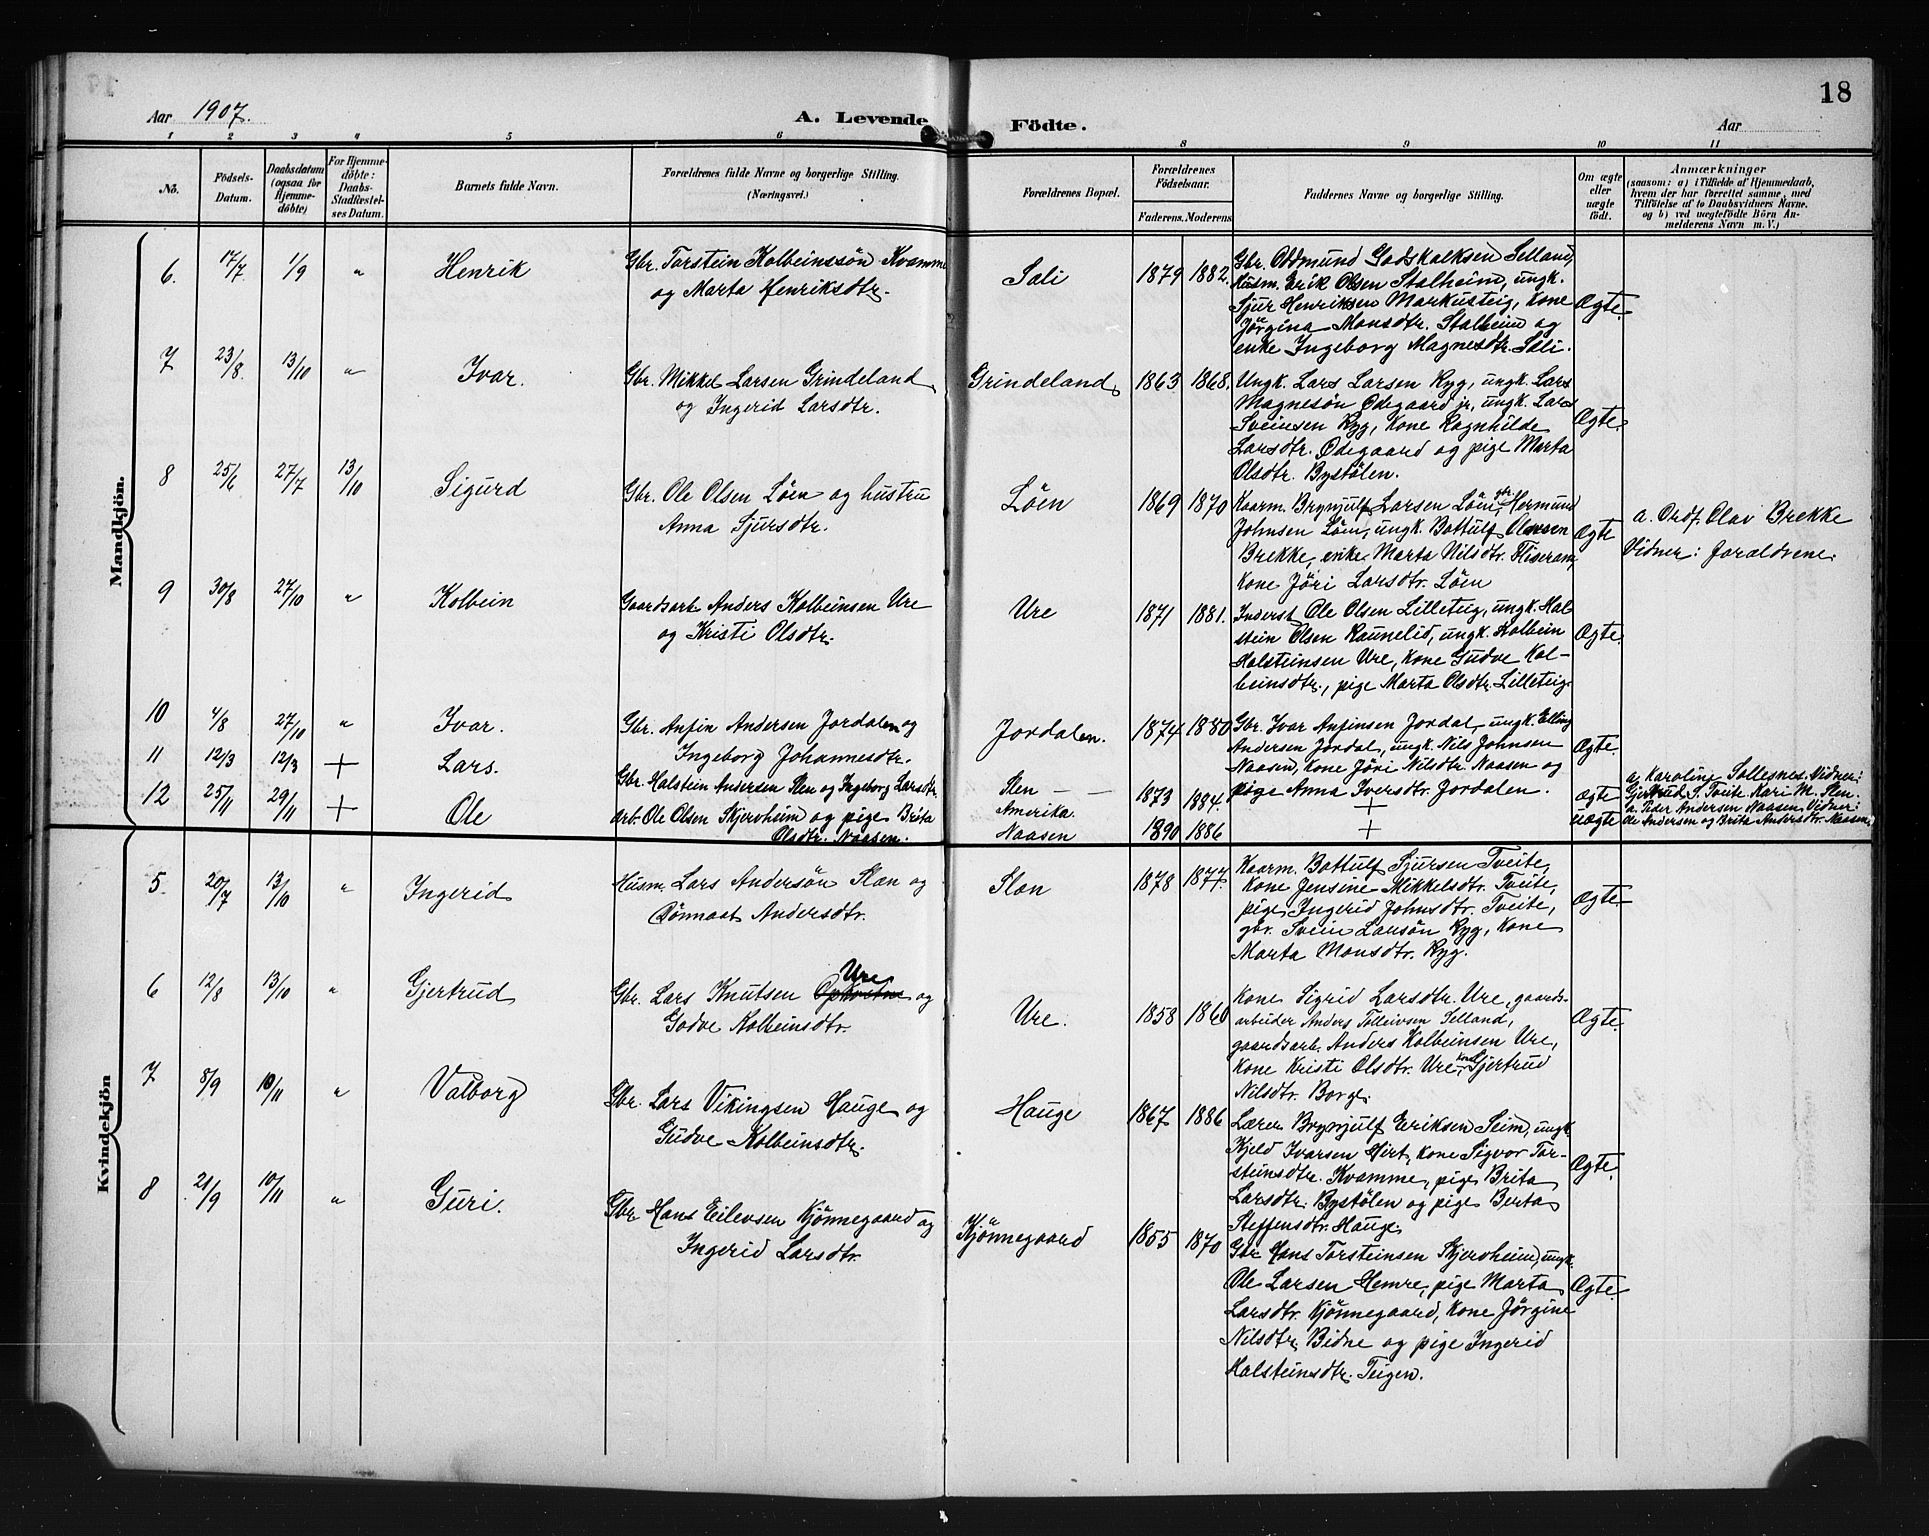 18
Aar 1907.
A. Levende Födte.
Aar
1 2 3 4 5 6 8 9 10 11
No.
Födsels-
Datum.
Daabsdatum
(ogsaa for
Hjemme-
døbte)
For Hjemme-
döbte:
Daabs-
Stadfæstel-
ses Datum.
Barnets fulde Navn.
Forældrenes fulde Navne og borgerlige Stilling.
(Næringsvei.)
Forældrenes Bopæl.
Forældrenes
Födselsaar.
Faderens. Moderens.
Faddernes Navne og borgerlige Stilling.
Om ægte
eller
uægte
födt.
Anmærkninger
(saasom: a) i Tilfælde af Hjemmedaab,
hvem der har forrettet samme, med
Tilföielse af to Daabsvidners Navne.
og b) ved uægtefödte Börn An-
melderens Navn m. V.)
Mandkjön.
6. 17/7. 1/9 " Henrik
Gbr. Torstein Kolbeinssön Kvamme
og Marta Henriksdtr.
Sali 1879 1882.
Gbr. Oddmund Godskalksen Selland,
Husm. Erik Olsen Stalheim, ungk.
Sjur Henriksen Markusteig, kone
Jörgina Monsdtr. Stalheim og
enke Ingeborg Magnesdtr. Sali.
Ægte.
7 23/8. 13/10 " Ivar.
Gbr. Mikkel Larsen Grindeland
og Ingerid Larsdtr.
Grindeland 1863 1868.
Ungk. Lars Larsen Ryg, ungk. Lars
Magnesön Ødegaard jr., ungk. Lars
Sveinsen Ryg, kone Ragnhilde
Larsdtr. Ødegaard og pige Marta
Olsdtr. Bystölen.
Ægte.
8 25/6 27/7 13/10 Sigurd
Gbr. Ole Olsen Löen og hustru
Anna Sjursdtr.
Löen 1869 1870
Kaarm. Brynjulf Larsen Löen, gbr. Hermund
Johnsen Löen, ungk. Bottulf Olsen
Brekke, enke Marta Nilsdtr.
kone Jöri Larsdtr. Löen
Ægte
a. Ordf. Olav Brekke
Vidner: Foraldrene.
9 30/8 27/10 " Kolbein
Gaardsarb. Anders Kolbeinsen Ure
og Kristi Olsdtr.
Ure 1871 1881.
Inderst Ole Olsen Lilleteig, ungk. Hal
stein Olsen Raunelid, ungk. Kolbein
Halsteinsen Ure, kone Gudve Kol-
beinsdtr., pige Marta Olsdtr. Lilleteig.
Ægte.
10 4/8 27/10 " Ivar.
Gbr. Anfin Andersen Jordalen og
Ingeborg Johannesdtr.
Jordalen. 1874 1880
Gbr. Ivar Anfinsen Jordal, ungk. Elling
Andersen Jordal, ungk. Nils Johnsen
Naasen, kone Jöri Nilsdtr. Naasen og
pige Anna Iversdtr. Jordalen.
Ægte.
11 12/3 12/3 + Lars.
Gbr. Halstein Andersen Slen og Ingeborg Larsdtr.
Slen — — 1873 1884. +
Ægte
a. Karoline Sollesnes. Vidner:
Gjertrud S. Tveite Kari M. Slen.
12 25/11 29/11 + Ole
arb. Ole Olsen Skjervheim og pige Brita
Olsdtr. Naasen.
Amerika.
Naasen 1890 1886 +
uægte
a. Peder Andersen Naasen. Vidner:
Ole Andersen og Brita Andersdtr. Naasen.
Kvindekjön
5. 20/7 13/10 " Ingerid
Husm. Lars Andersön Slon og
Andersdtr.
Slon 1878 1877.
Kaarm. Bottulf Sjursen Tveite,
kone Jensine Mikkelsdtr. Tveite,
pige Ingerid Johnsdtr. Tveite,
gbr. Svein Larsön Ryg, kone
Marta Monsdtr. Ryg.
Ægte.
6 12/8 13/10 " Gjertrud
Ure
Gbr. Lars Knutsen og
Godve Kolbeinsdtr.
Ure. 1858 1860
Kone Sigrid Larsdtr. Ure, gaards-
arbeider Anders Tolleivsen Selland,
gaardsarb. Anders Kolbeinsen Ure,
kone Kristi Olsdtr. Ure, kone Gjertrud
Nilsdtr. Borge.
Ægte.
7 8/9 10/11 " Valborg
Gbr. Lars Vikingsen Hauge og
Gudve Kolbeinsdtr.
Hauge 1867 1886
Lærer Brynjulf Eriksen Seim, ungk.
Kjeld Ivarsen Hirt, kone Sigvor Tor-
steinsdtr. Kvamme, pige Brita
Larsdtr. Bystölen og pige Berta
Steffensdtr. Hauge
Ægte.
8 21/9 10/11 " Guri.
Gbr. Hans Eilevsen Kjönnegaard og
Ingerid Larsdtr.
Kjönnegaard 1855 1870
Gbr Hans Torsteinsen Skjervheim, ungk.
Ole Larsen Hemre, pige Marta
Larsdtr. Kjönnegaard, kone Jörgine
Nilsdtr. Bidne og pige Ingerid
Halsteinsdtr. Teigen.
Ægte.